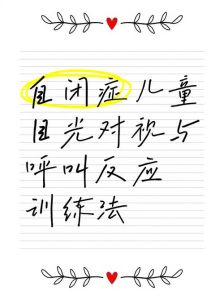 自闭症儿童
目光对视与
呼叫反应
训练法